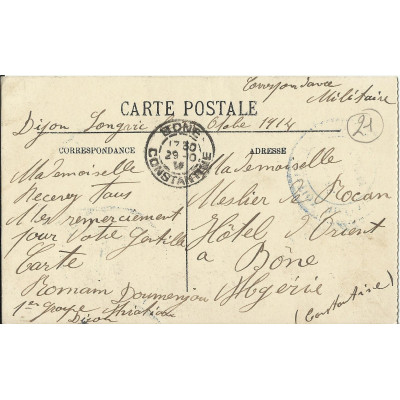 Correspondance
Militaire
CARTE POSTALE
Dijon Longvic Octobre 1914
21
BONE
17 30
29 10
CONSTANTINE
CORRESPONDANCE
ADRESSE
Mademoiselle
Recevez Tous
Mes remerciement
pour Votre Gentille
Carte
Romain Doumenjou
1er groupe Aviation
Dijon
Mademoiselle
Meslier de Rocan
Hôtel d'Orient
a Bône
Algérie
(Constantine)